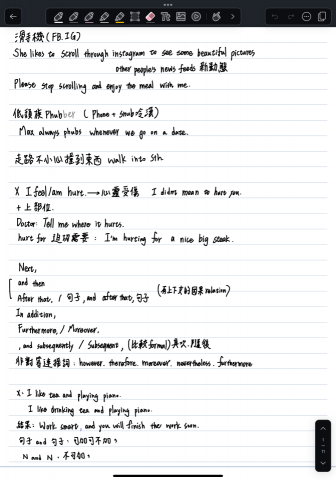 滑手機(FB.IG)
She likes to scroll through instagram to see some beautiful pictures
other people's news feeds 新動態
Please stop scrolling and enjoy the meal with me.
低頭族 Phubber ( Phone + snub 冷漠)
Max always phubs whenever we go on a date.
走路不小心撞到東西 walk into sth.
X I feel/am hurt. → 心靈受傷 I didn't mean to hurt you.
+ 上部位.
Doctor: Tell me where it hurts.
hurt for 迫切需要 : I'm hurting for a nice big steak.
Next,
and then
After that, / 句子, and after that, 句子 (有上下文的因果relation)
In addition,
Furthermore, / Moreover,
, and subsequently / Subsequent, (比較formal) 其次.隨後
非對等連接詞 : however. therefore. moreover. nevertheless. furthermore
X. I like tea and playing piano.
I like drinking tea and playing piano.
結果: Work smart, and you will finish the work soon.
句子 and 句子 : 可加可不加 ,
N and N . 不可加 ,